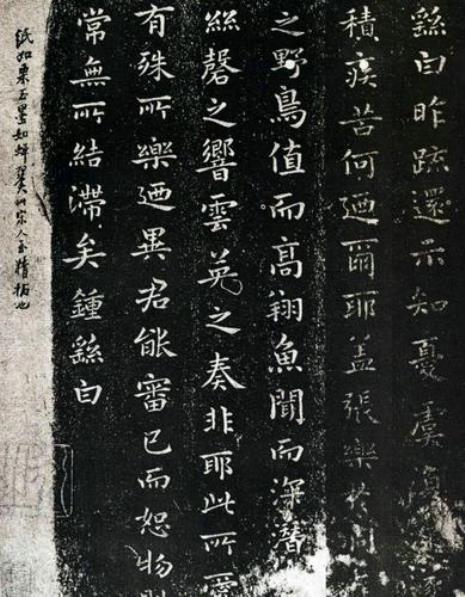 繇白昨疏還示知憂虞復深遂
積疾苦何迺爾耶蓋張樂於洞
之野鳥值而高翔魚聞而深潛
絲磬之響雲英之奏非耶此所愛
有殊所樂迺異君能審己而恕物則
常無所結滯矣鍾繇白
紙如栗玉墨如蟬翼此宋人至精拓也